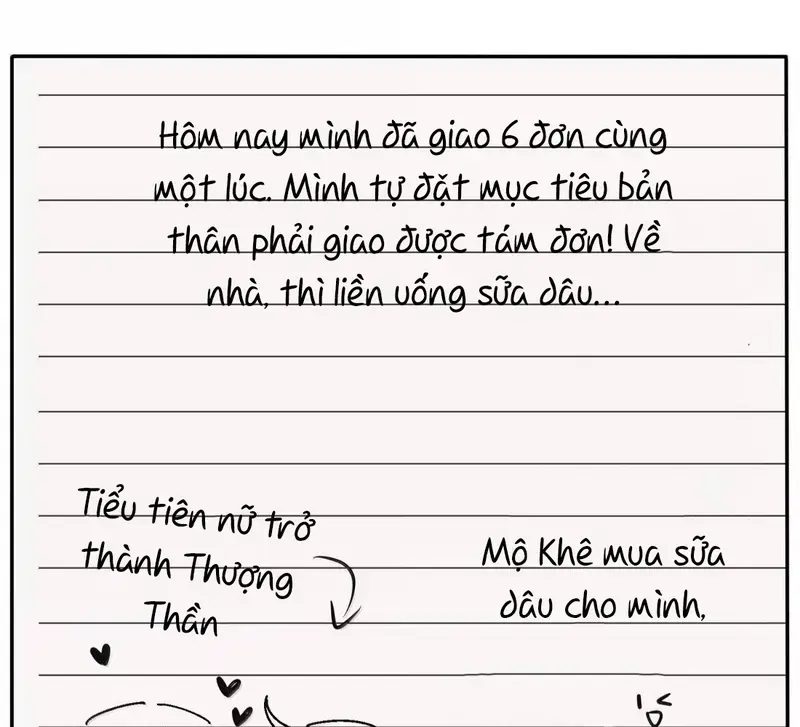 Hôm nay mình đã giao 6 đơn cùng
một lúc. Mình tự đặt mục tiêu bản
thân phải giao được tám đơn! Về
nhà, thì liền uống sữa dâu...
Tiểu tiên nữ trở
thành Thượng
Thần
Mộ Khê mua sữa
dâu cho mình,